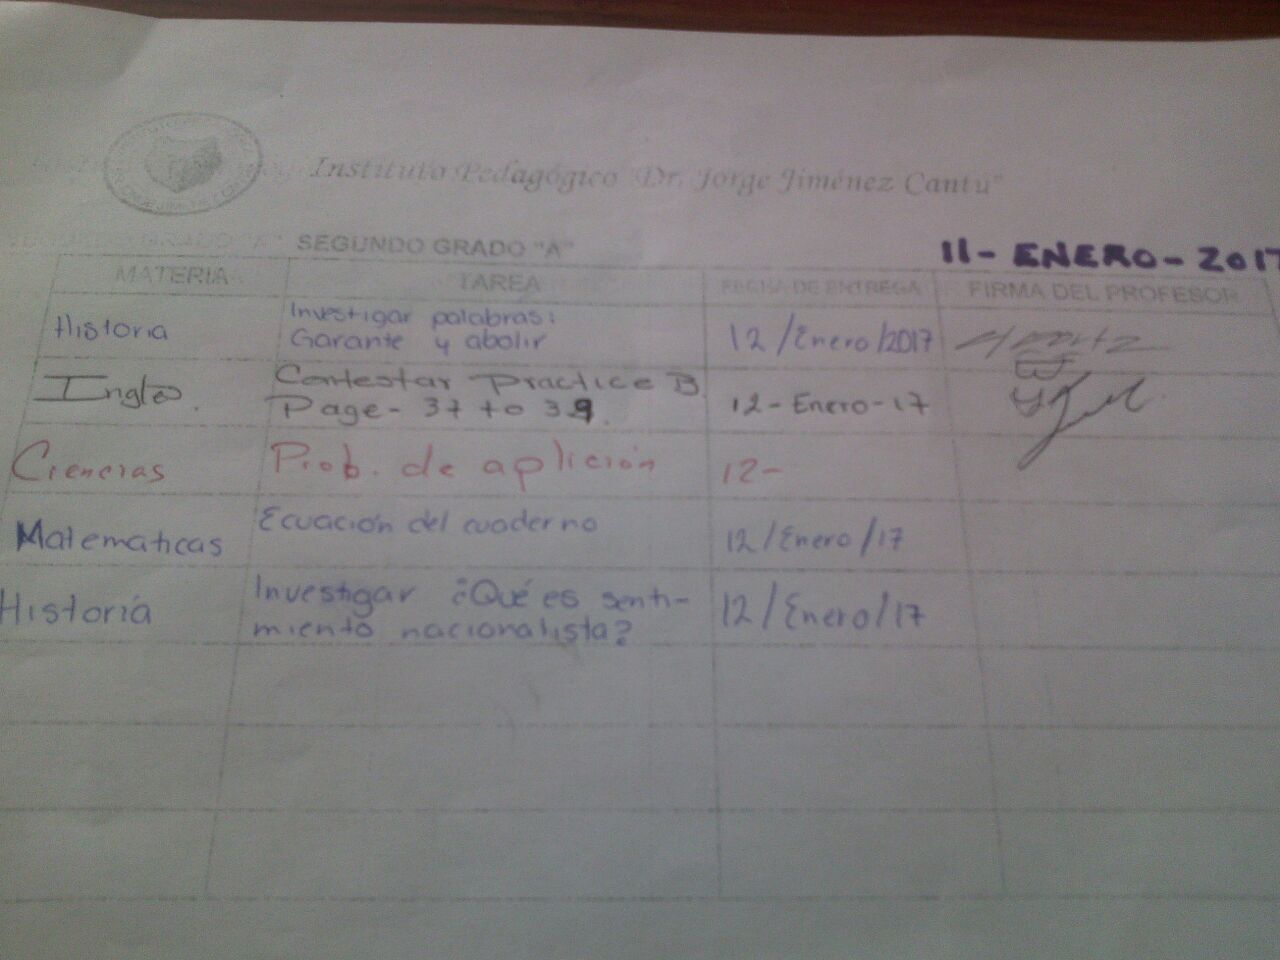 Instituto Pedagógico "Dr. Jorge Jiménez Cantú"
SEGUNDO GRADO "A"
11- ENERO - 2017
MATERIA TAREA FECHA DE ENTREGA FIRMA DEL PROFESOR
Historia Investigar palabras: Garante y abolir 12/Enero/2017
Inglés. Contestar Practice B Page- 37 to 39. 12- Enero-17
Ciencias Prob. de aplición 12-
Matematicas Ecuación del cuaderno 12/Enero/17
Historia Investigar ¿Qué es senti-
miento nacionalista? 12/Enero/17